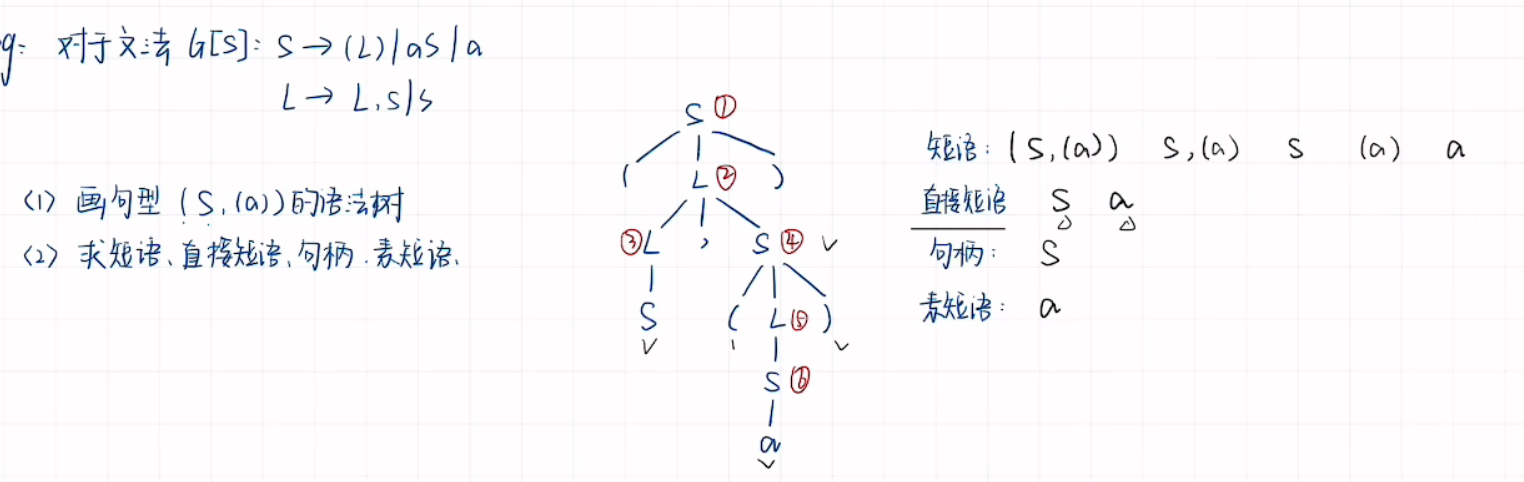 g: 对于文法 G[S]: S → (L) | aS | a
L → L,S | S
(1) 画句型 (S,(a)) 的语法树
(2) 求短语、直接短语、句柄、素短语.
S ①
( L ② )
③ L , S ④ ✓
S ( L ⑤ )
S ⑥
a
短语: (S,(a)) S,(a) S (a) a
直接短语 S a
句柄: S
素短语: a